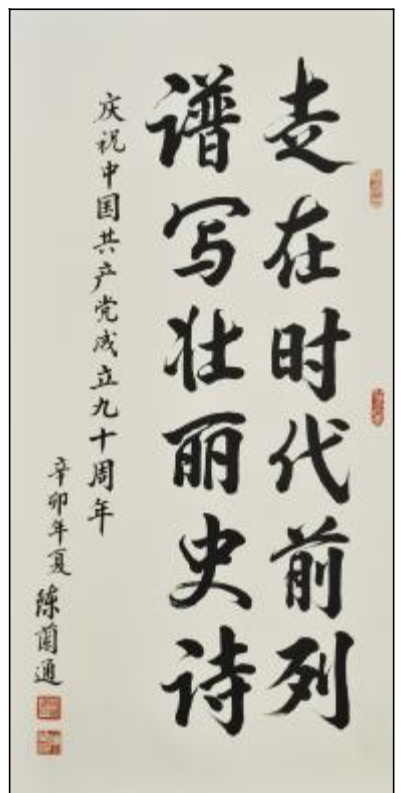 走在时代前列
谱写壮丽史诗
庆祝中国共产党成立九十周年
辛卯年夏 陈兰通